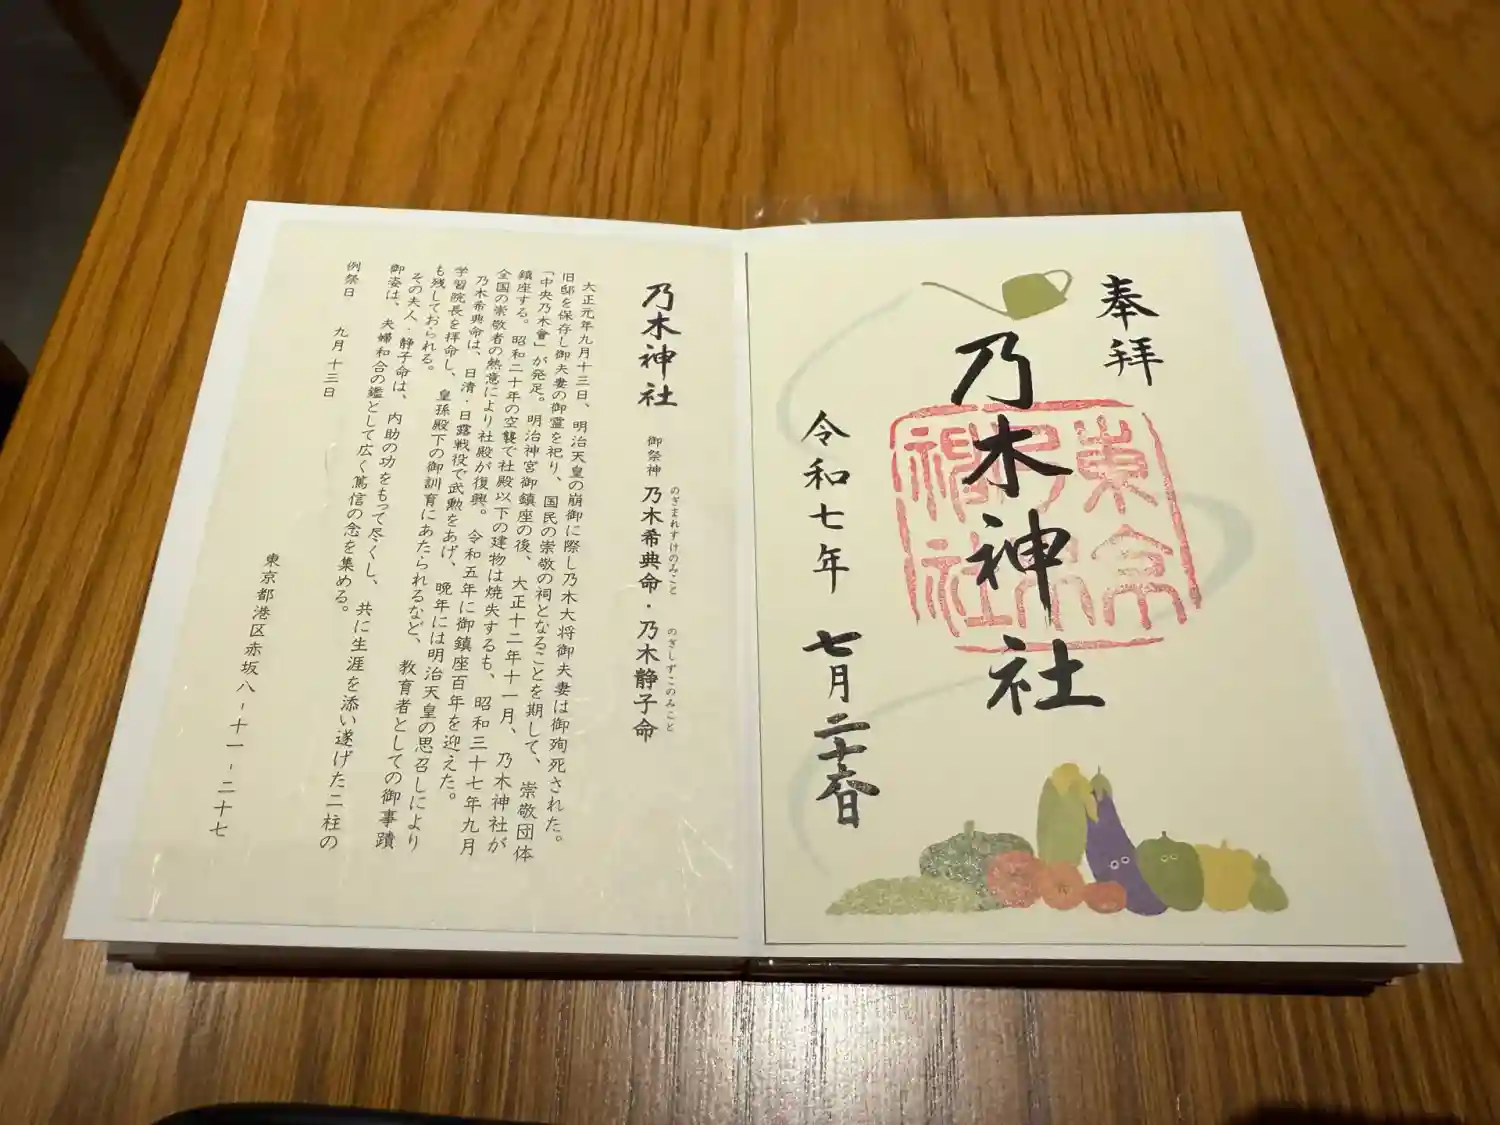 奉拝
乃木神社
東京乃木神社
令和七年 七月二十六日
乃木神社 御祭神 乃木希典命・乃木静子命
のぎまれすけのみこと のぎしずこのみこと
大正元年九月十三日、明治天皇の崩御に際し乃木大将御夫妻は御殉死された。
旧邸を保存し御夫妻の御霊を祀り、国民の崇敬の祠となることを期して、崇敬団体
「中央乃木會」が発足。明治神宮御鎮座の後、大正十二年十一月、乃木神社が
鎮座する。昭和二十年の空襲で社殿以下の建物は焼失するも、昭和三十七年九月
全国の崇敬者の熱意により社殿が復興。令和五年に御鎮座百年を迎えた。
乃木希典命は、日清・日露戦役で武勲をあげ、晩年には明治天皇の思召しにより
学習院長を拝命し、皇孫殿下の御訓育にあたられるなど、教育者としての御事蹟
も残しておられる。
その夫人・静子命は、内助の功をもって尽くし、共に生涯を添い遂げた二柱の
御姿は、夫婦和合の鑑として広く篤信の念を集める。
例祭日 九月十三日
東京都港区赤坂八-十一-二十七